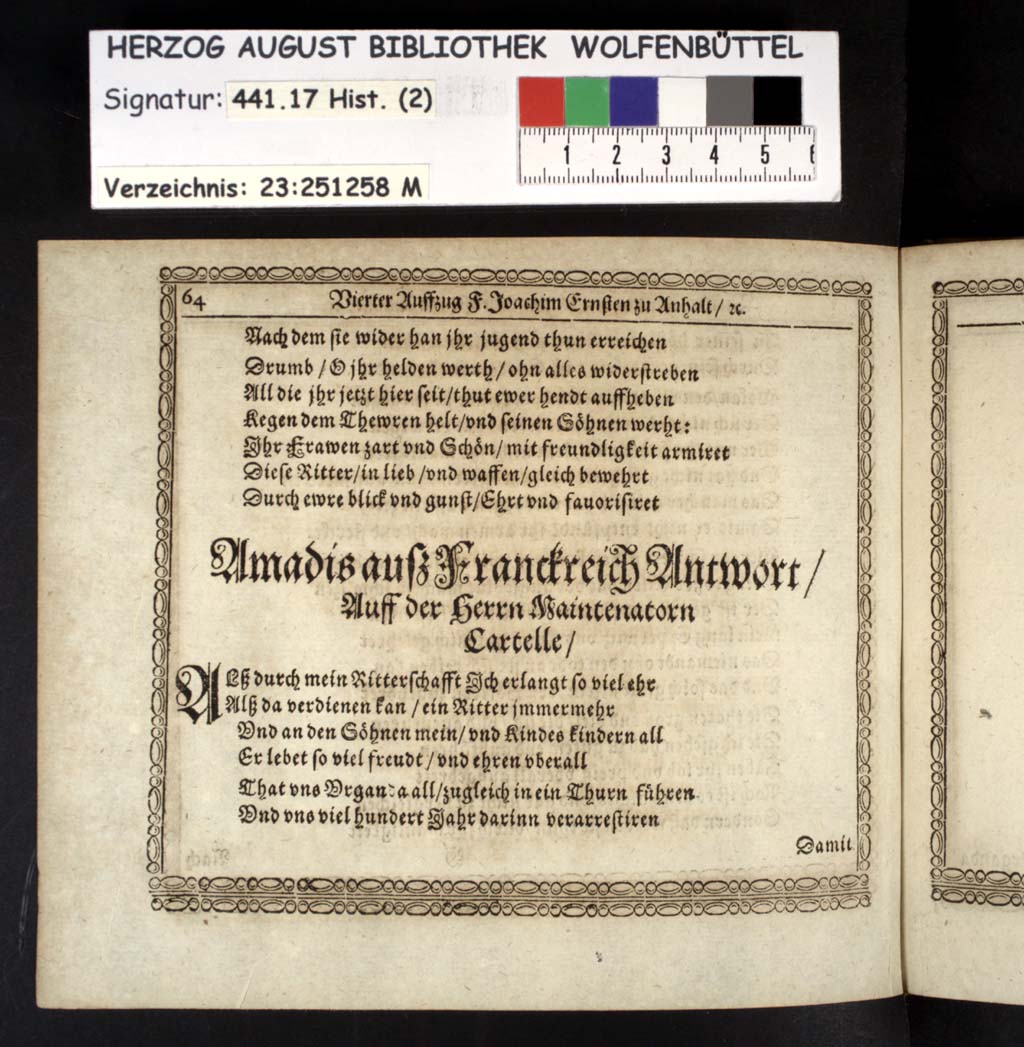 HERZOG AUGUST BIBLIOTHEK WOLFENBÜTTEL
Signatur: 441.17 Hist. (2)
1 2 3 4 5 6
Verzeichnis: 23:251258 M
64 Vierter Auffzug F. Joachim Ernsten zu Anhalt / ꝛc.
Nach dem sie wider han jhr jugend thun erreichen
Drumb / O jhr helden werth / ohn alles widerstreben
All die jhr jetzt hier seit / thut ewer hendt auffheben
Kegen dem Thewren helt / vnd seinen Söhnen werht:
Ihr Frawen zart vnd Schön / mit freundligkeit armiret
Diese Ritter / in lieb / vnd waffen / gleich bewehrt
Durch ewre blick vnd gunst / Ehrt vnd fauorisiret
Amadis auß Franckreich Antwort /
Auff der Herrn Maintenatorn
Cartelle /
ALß durch mein Ritterschafft Ich erlangt so viel ehr
Alß da verdienen kan / ein Ritter jmmermehr
Vnd an den Söhnen mein / vnd Kindes kindern all
Er lebet so viel freudt / vnd ehren vberall
That vns Vrganda all / zugleich in ein Thurn führen
Vnd vns viel hundert Jahr darinn verarrestiren
Damit